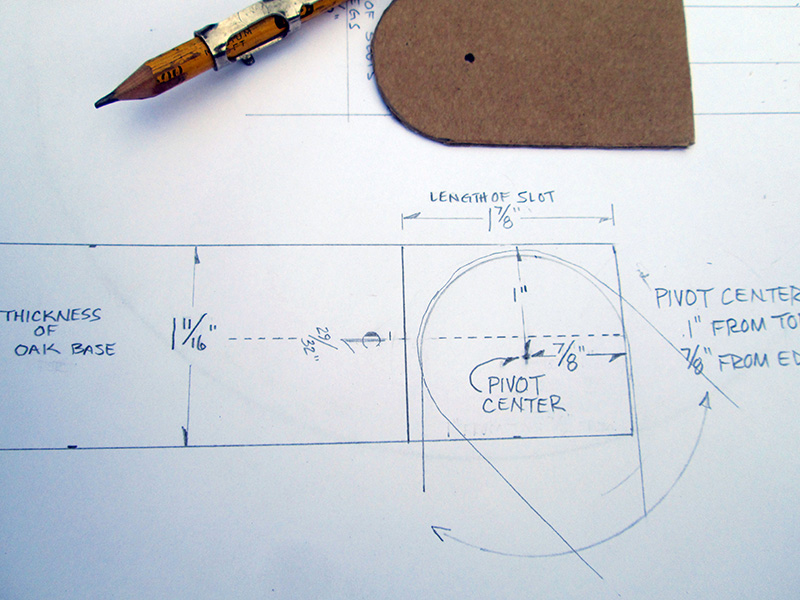 OF SLOTS
LENGTH OF SLOT
1 7/8"
THICKNESS
OF
OAK BASE
1 11/16"
29/32"
1"
7/8"
PIVOT
CENTER
PIVOT CENTER
1" FROM TO
7/8" FROM ED